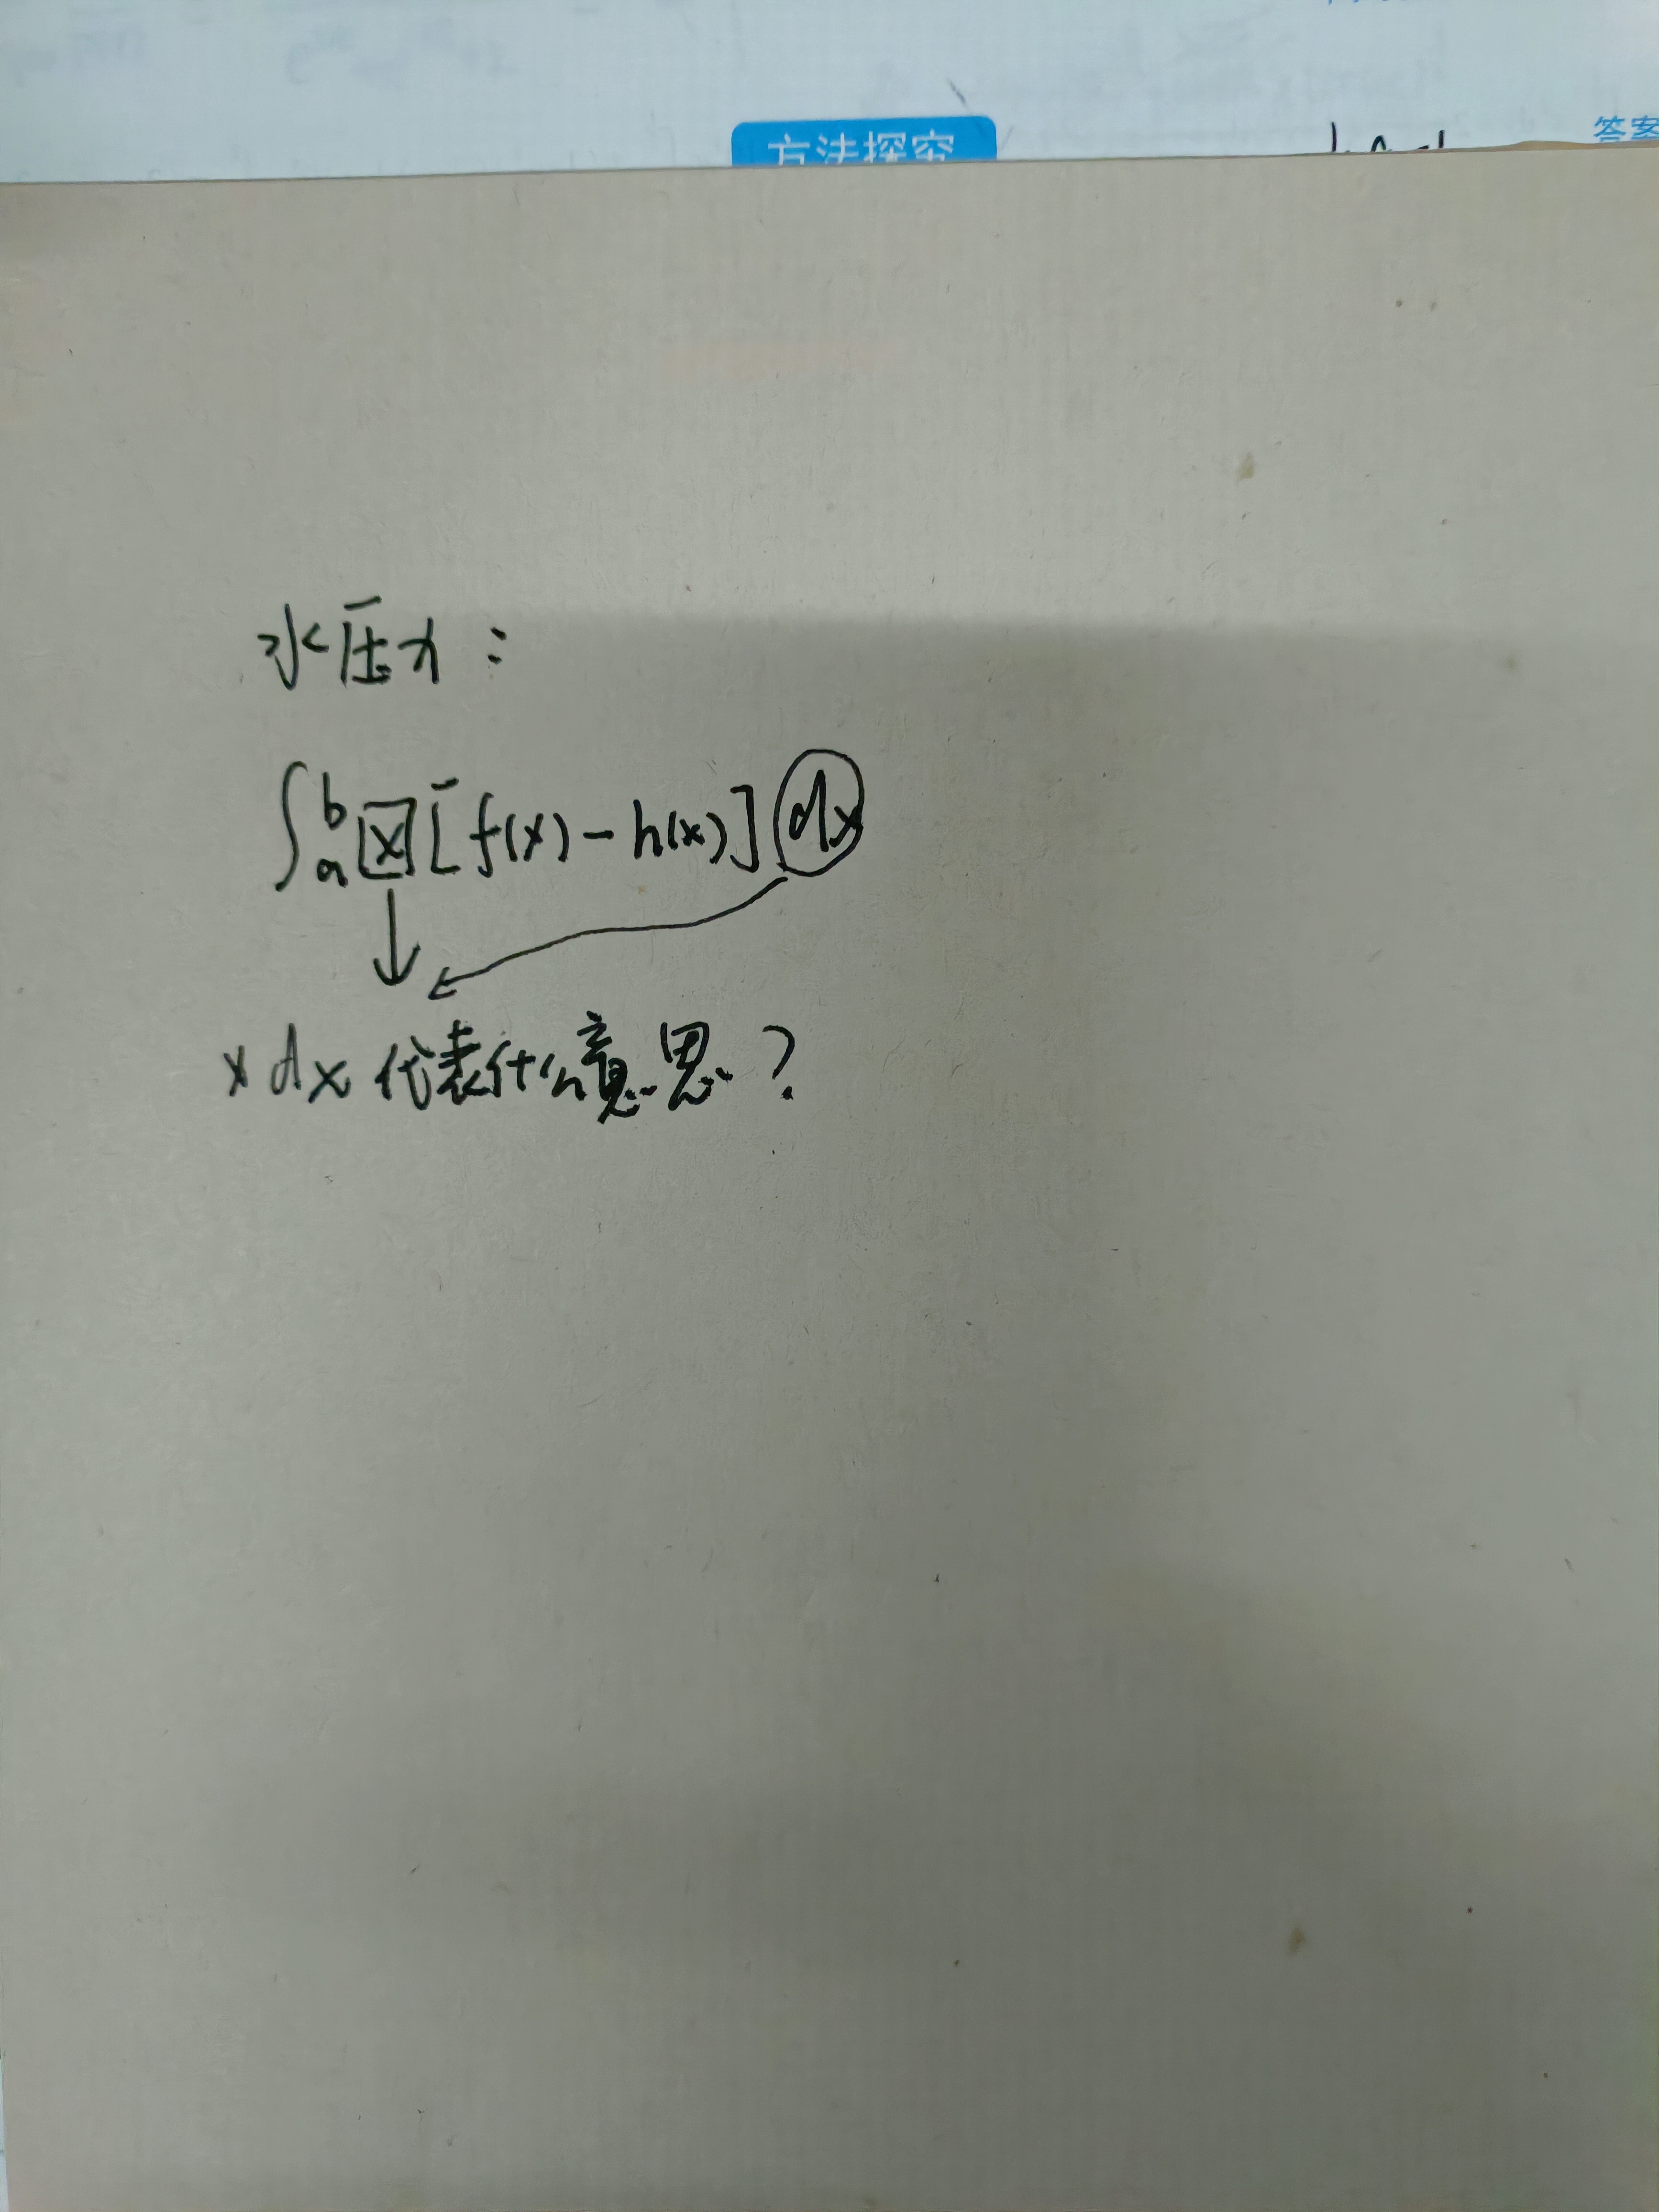 方法探究
答案
水压力：
∫ₐᵇ x [f(x) - h(x)] dx
x dx 代表什么意思？